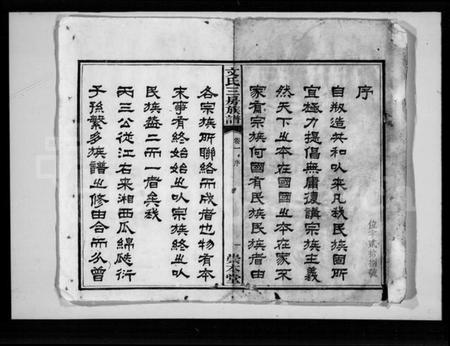 序
自叔造共和以来凡我民族固所
宜極力提倡無庸復講宗族主義
然天下之本在國國之本在家不
家有宗族何國有民族民族者由
文氏三房族譜
卷一
序
一
崇本堂
各宗族所聯絡而成者也物有本
末事有終始始之以宗族終之以
民族蓋二而一者矣我
丙三公從江右来湘西瓜綿瓞衍
子孫繁多族譜之修由合而分曾